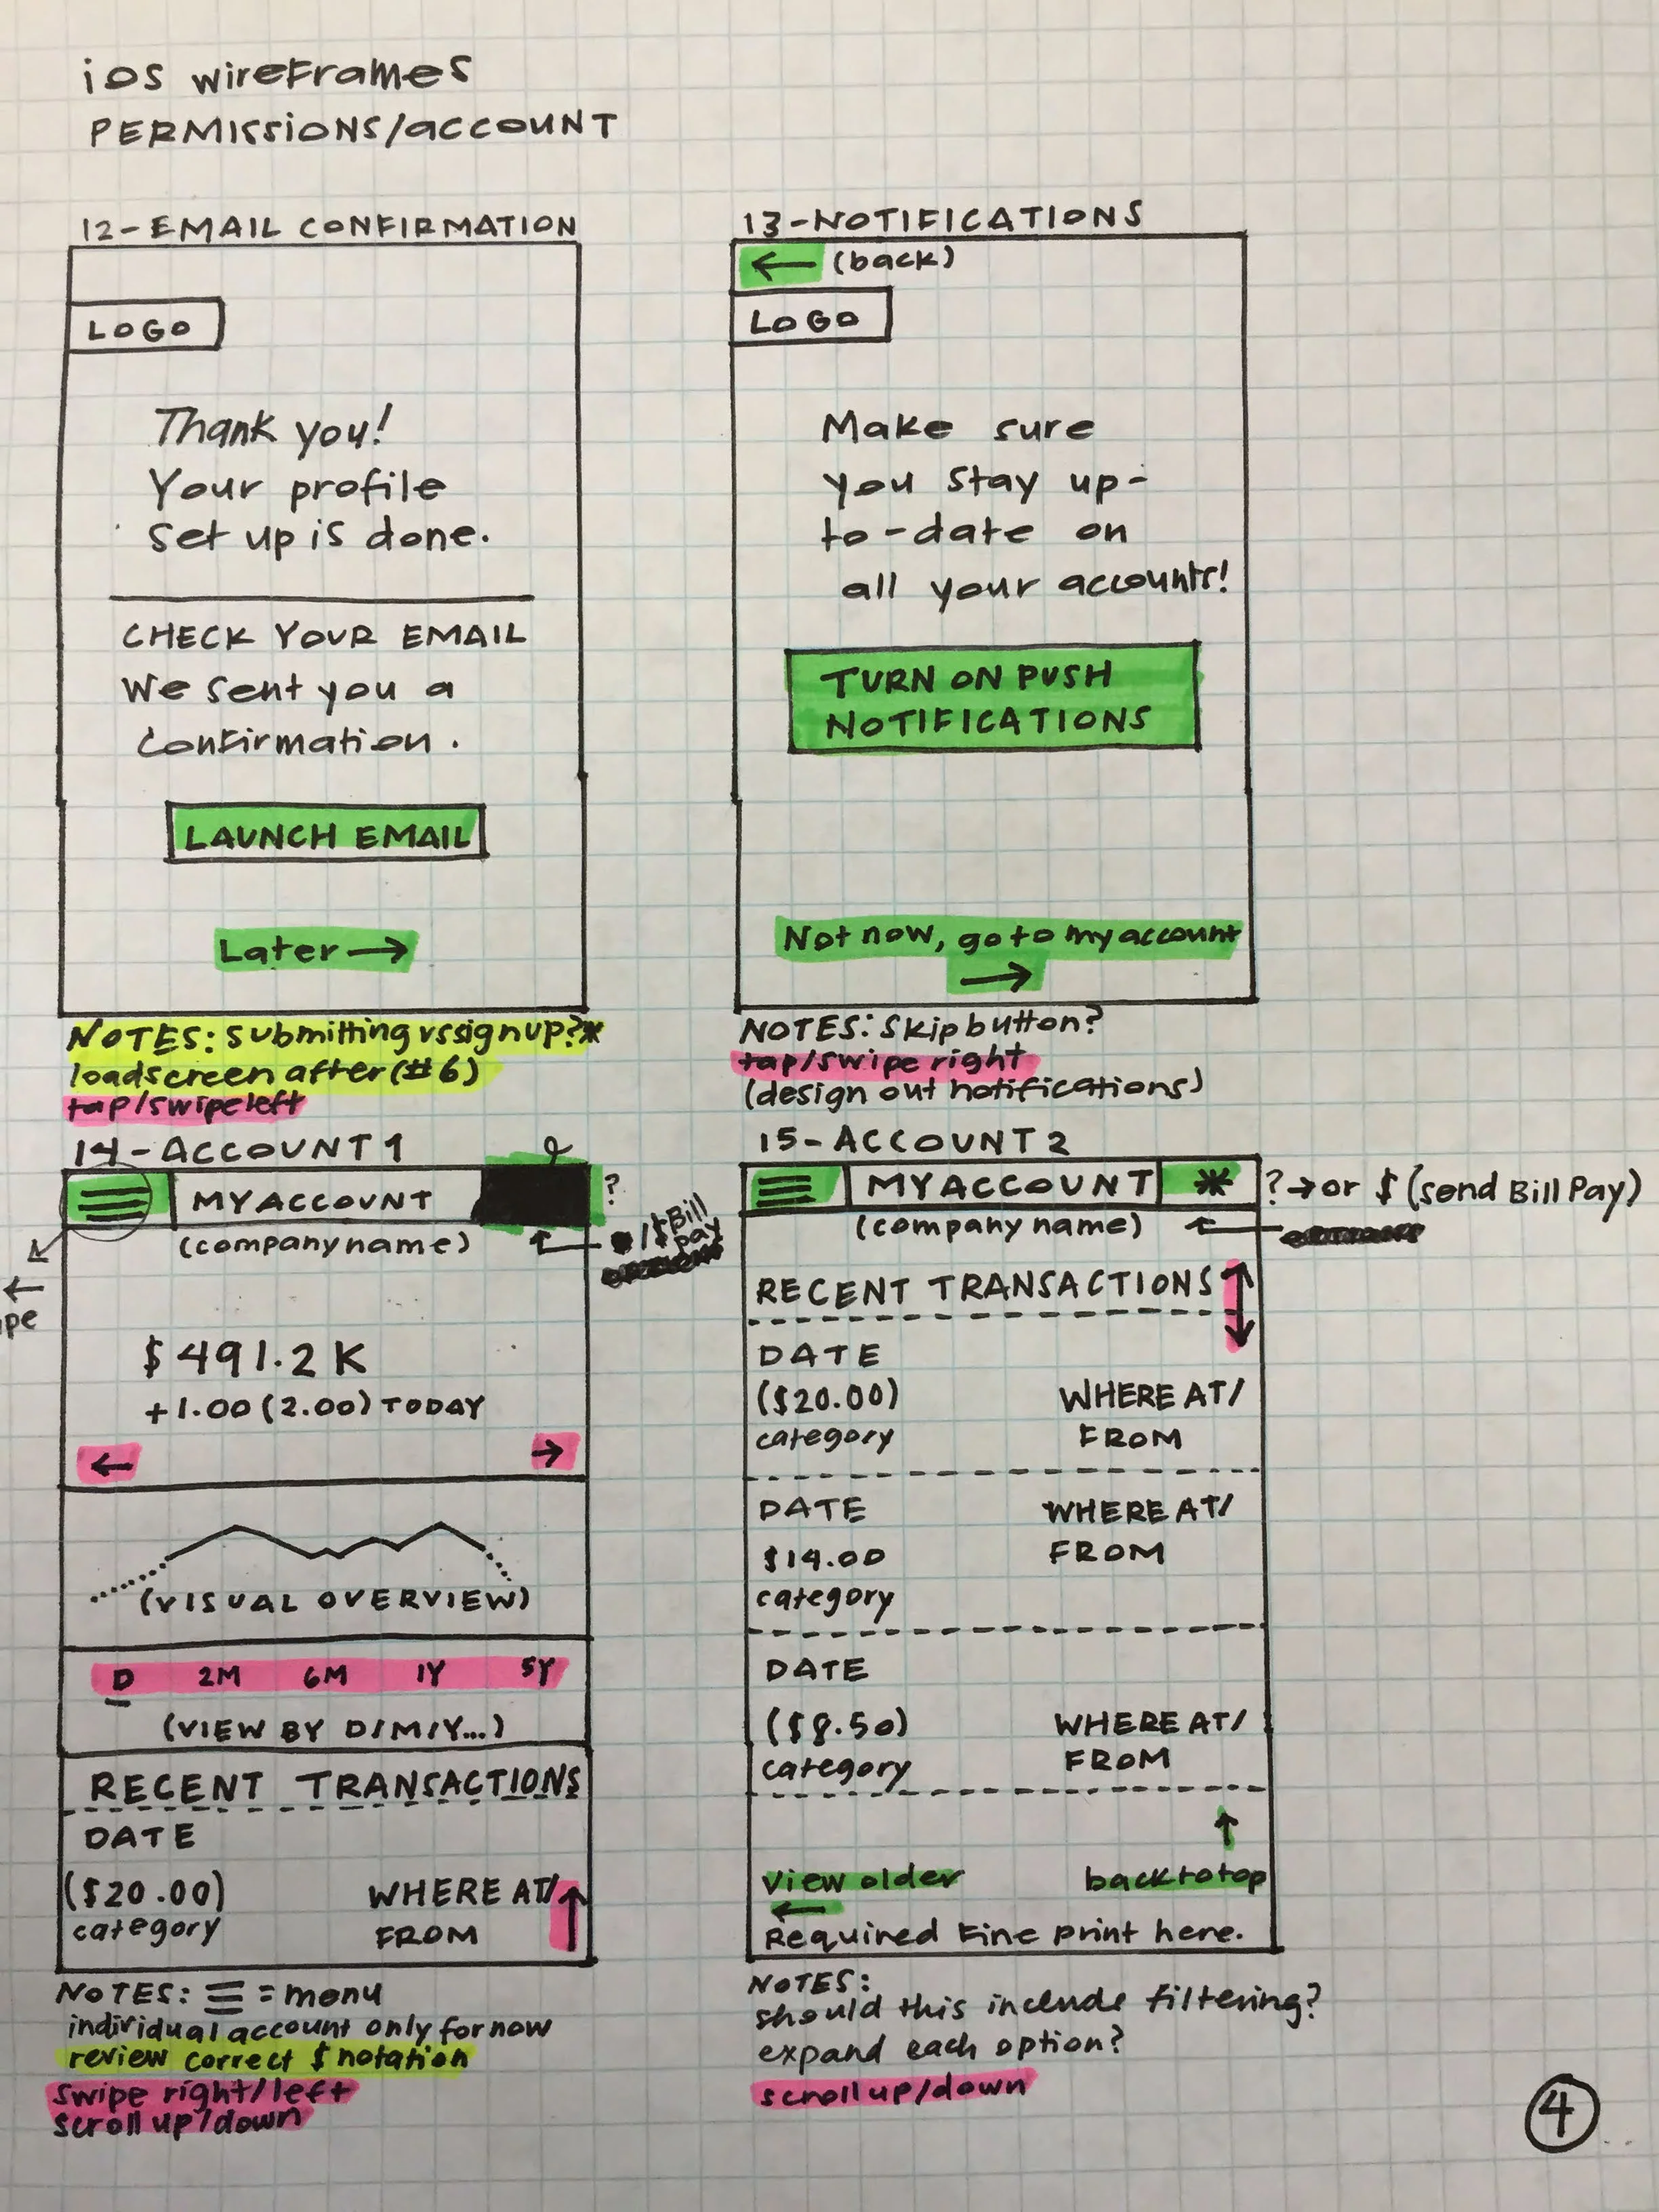 ios wireframes
PERMISSIONS/account
12-EMAIL CONFIRMATION
LOGO
Thank you!
Your profile
set up is done.
CHECK YOUR EMAIL
We sent you a
confirmation.
LAUNCH EMAIL
Later →
NOTES: submitting vs signup?*
loadscreen after (#6)
tap/swipe left
13-NOTIFICATIONS
← (back)
LOGO
Make sure
you stay up-
to-date on
all your accounts!
TURN ON PUSH
NOTIFICATIONS
Not now, go to my account
→
NOTES: Skip button?
tap/swipe right
(design out notifications)
14-ACCOUNT 1
MY ACCOUNT
?
(company name)
/$ Bill
pay
←
$491.2K
+1.00 (2.00) TODAY
← →
(VISUAL OVERVIEW)
D 2M 6M 1Y 5Y
(VIEW BY D/M/Y...)
RECENT TRANSACTIONS
DATE
($20.00) WHERE AT/
category FROM
NOTES: ☰ = menu
individual account only for now
review correct $ notation
swipe right/left
scroll up/down
15-ACCOUNT 2
☰ MY ACCOUNT * ? → or $ (send Bill Pay)
(company name) ←
RECENT TRANSACTIONS
DATE
($20.00) WHERE AT/
category FROM
DATE WHERE AT/
$14.00 FROM
category
DATE
($8.50) WHERE AT/
category FROM
↑
View older back to top
←
Required Fine print here.
NOTES:
should this include filtering?
expand each option?
scroll up/down
4